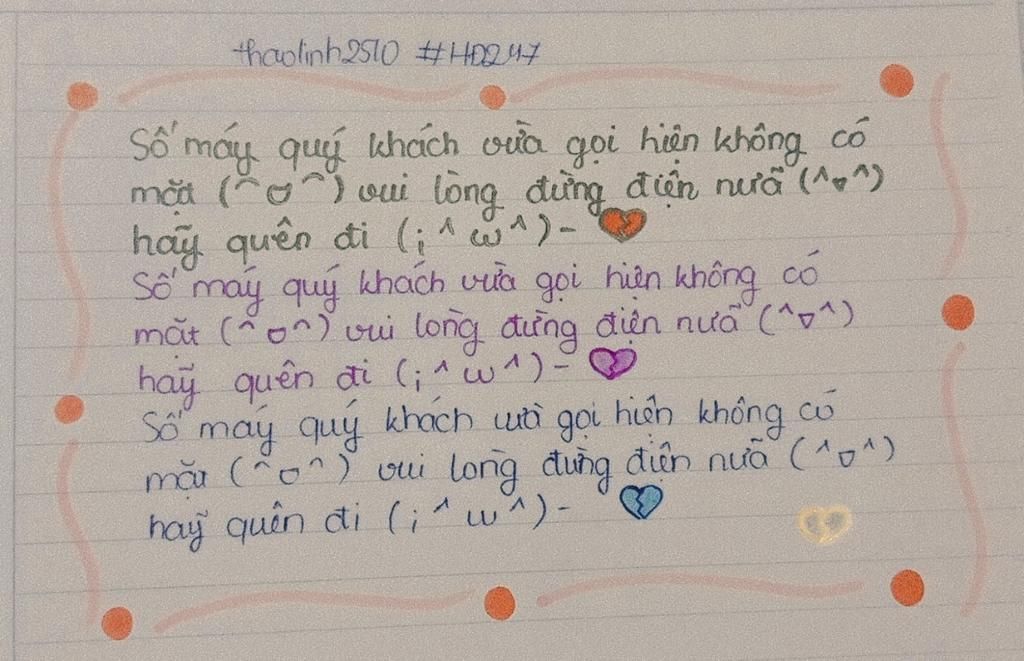 thaolinh2510 #HD247
Số máy quý khách vừa gọi hiện không có
mặt (^ᗜ^) vui lòng đừng điện nữa (^▿^)
hãy quên đi (¡^ω^)- 💔
Số máy quý khách vừa gọi hiện không có
mặt (^ᗜ^) vui lòng đừng điện nữa (^▿^)
hãy quên đi (¡^ω^)- 💔
Số máy quý khách vừa gọi hiện không có
mặt (^ᗜ^) vui lòng đừng điện nữa (^▿^)
hãy quên đi (¡^ω^)- 💔